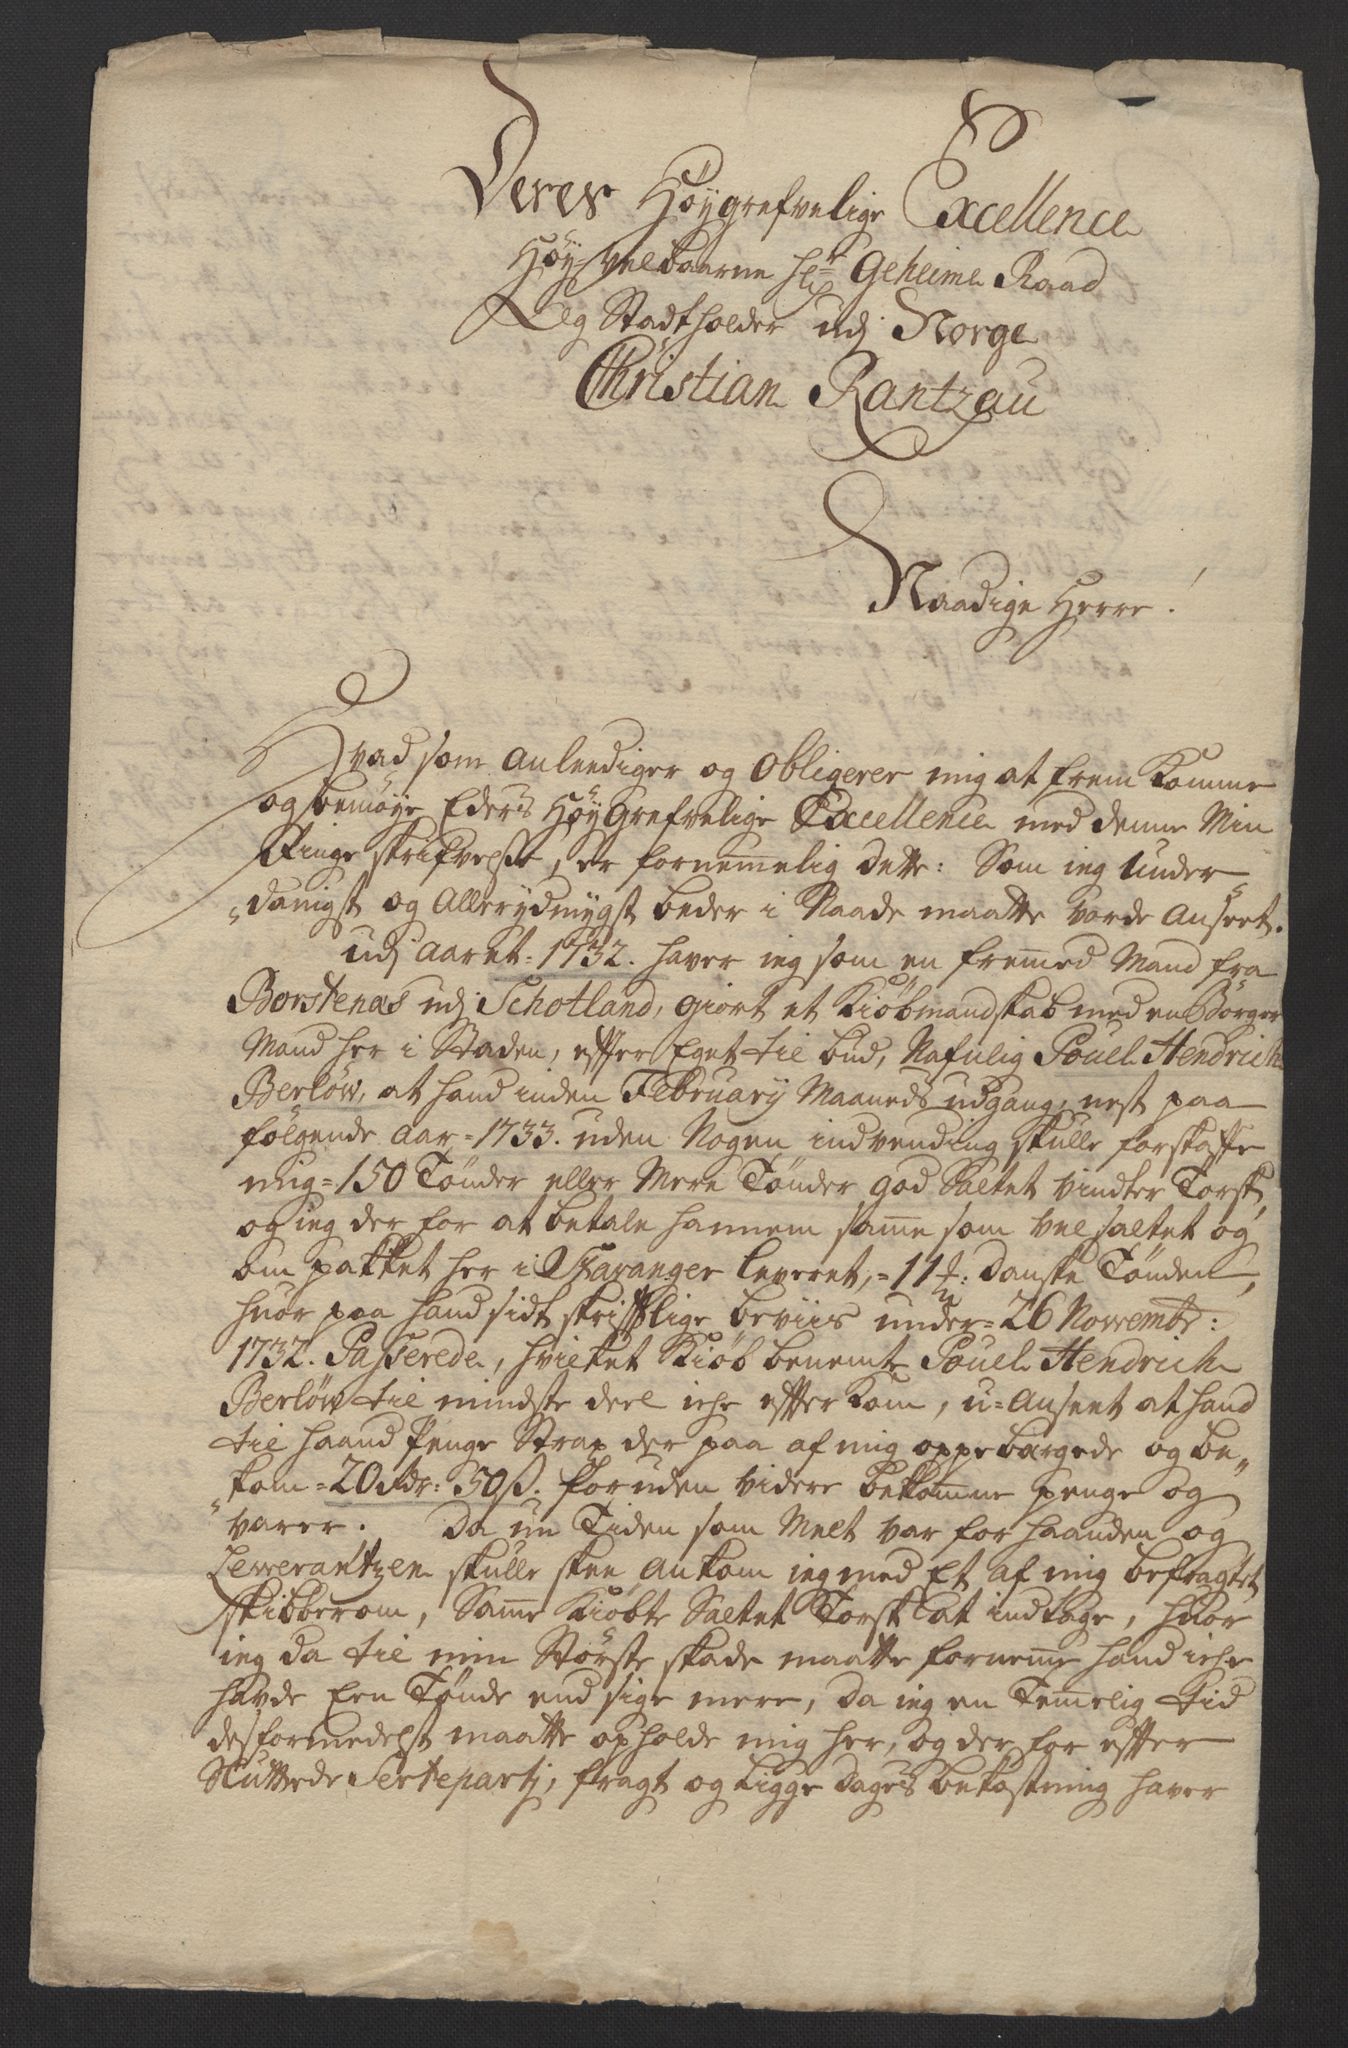 Deres Høÿgrefvelige Excellence
Høÿ-Velbaarne Hr Geheime Raad
Og Stadtholder udj Norge
Christian Rantzau
Naadige Herre!
Hvad som anleediger og Obligerer mig at frem komme
og bemøye Eders HøyGrefvelige Excellence med denne Min
Ringe skrifvelsse, er fornemmelig dette: Som ieg Under
danigst og Allerydmygst beder i Naade maatte vorde anseet.
udj aaret 1732. haver ieg som en fremmed Mand fra
Borstenæs udj Schotland, giort et Kiöbmandskab med en Börger
Mand her i Staden, effter Eget tilbud, Nafnlig Pouel Hendrich
Berlöw, at hand inden Februarÿ Maaneds udgang, nest paa
fölgende aar=1733. uden Nogen indvending skulle forskaffe
mig=150 Tönder eller Mere Tönder god Saltet vindter Torsk,
og ieg der for at betale hannem samme som vel saltet og
om pakket her i Stavanger leveret,=11 danske Tönden,
huor paa hand sidt skrifftlige beviis under=26 Novembr:
1732. Passerede, hvilket Kiöb benemte Pouel Hendrich
Berlöw til mindste deel iche effterkom, u=anseet at hand
til haand Penge Strax der paa af mig oppebargede og be„
„kom=20 Rdr: 50ß. foruden videre bekomne penge og
varer. Da nu Tiden som Melt var for haanden og
Lewerantzen skulle skee ankom ieg med Et af mig befragtet
skibberom, Samme Kiöbte Saltet Torsk at indtage, huor
ieg da til min Störste skade maatte fornemme hand iche
havde Een Tönde end sige mere, da ieg en Temmelig tid
desformedelst maatte opholde mig her, og der for effter
Sluttede Serteparti, fragt og Ligge dages bekostning haver